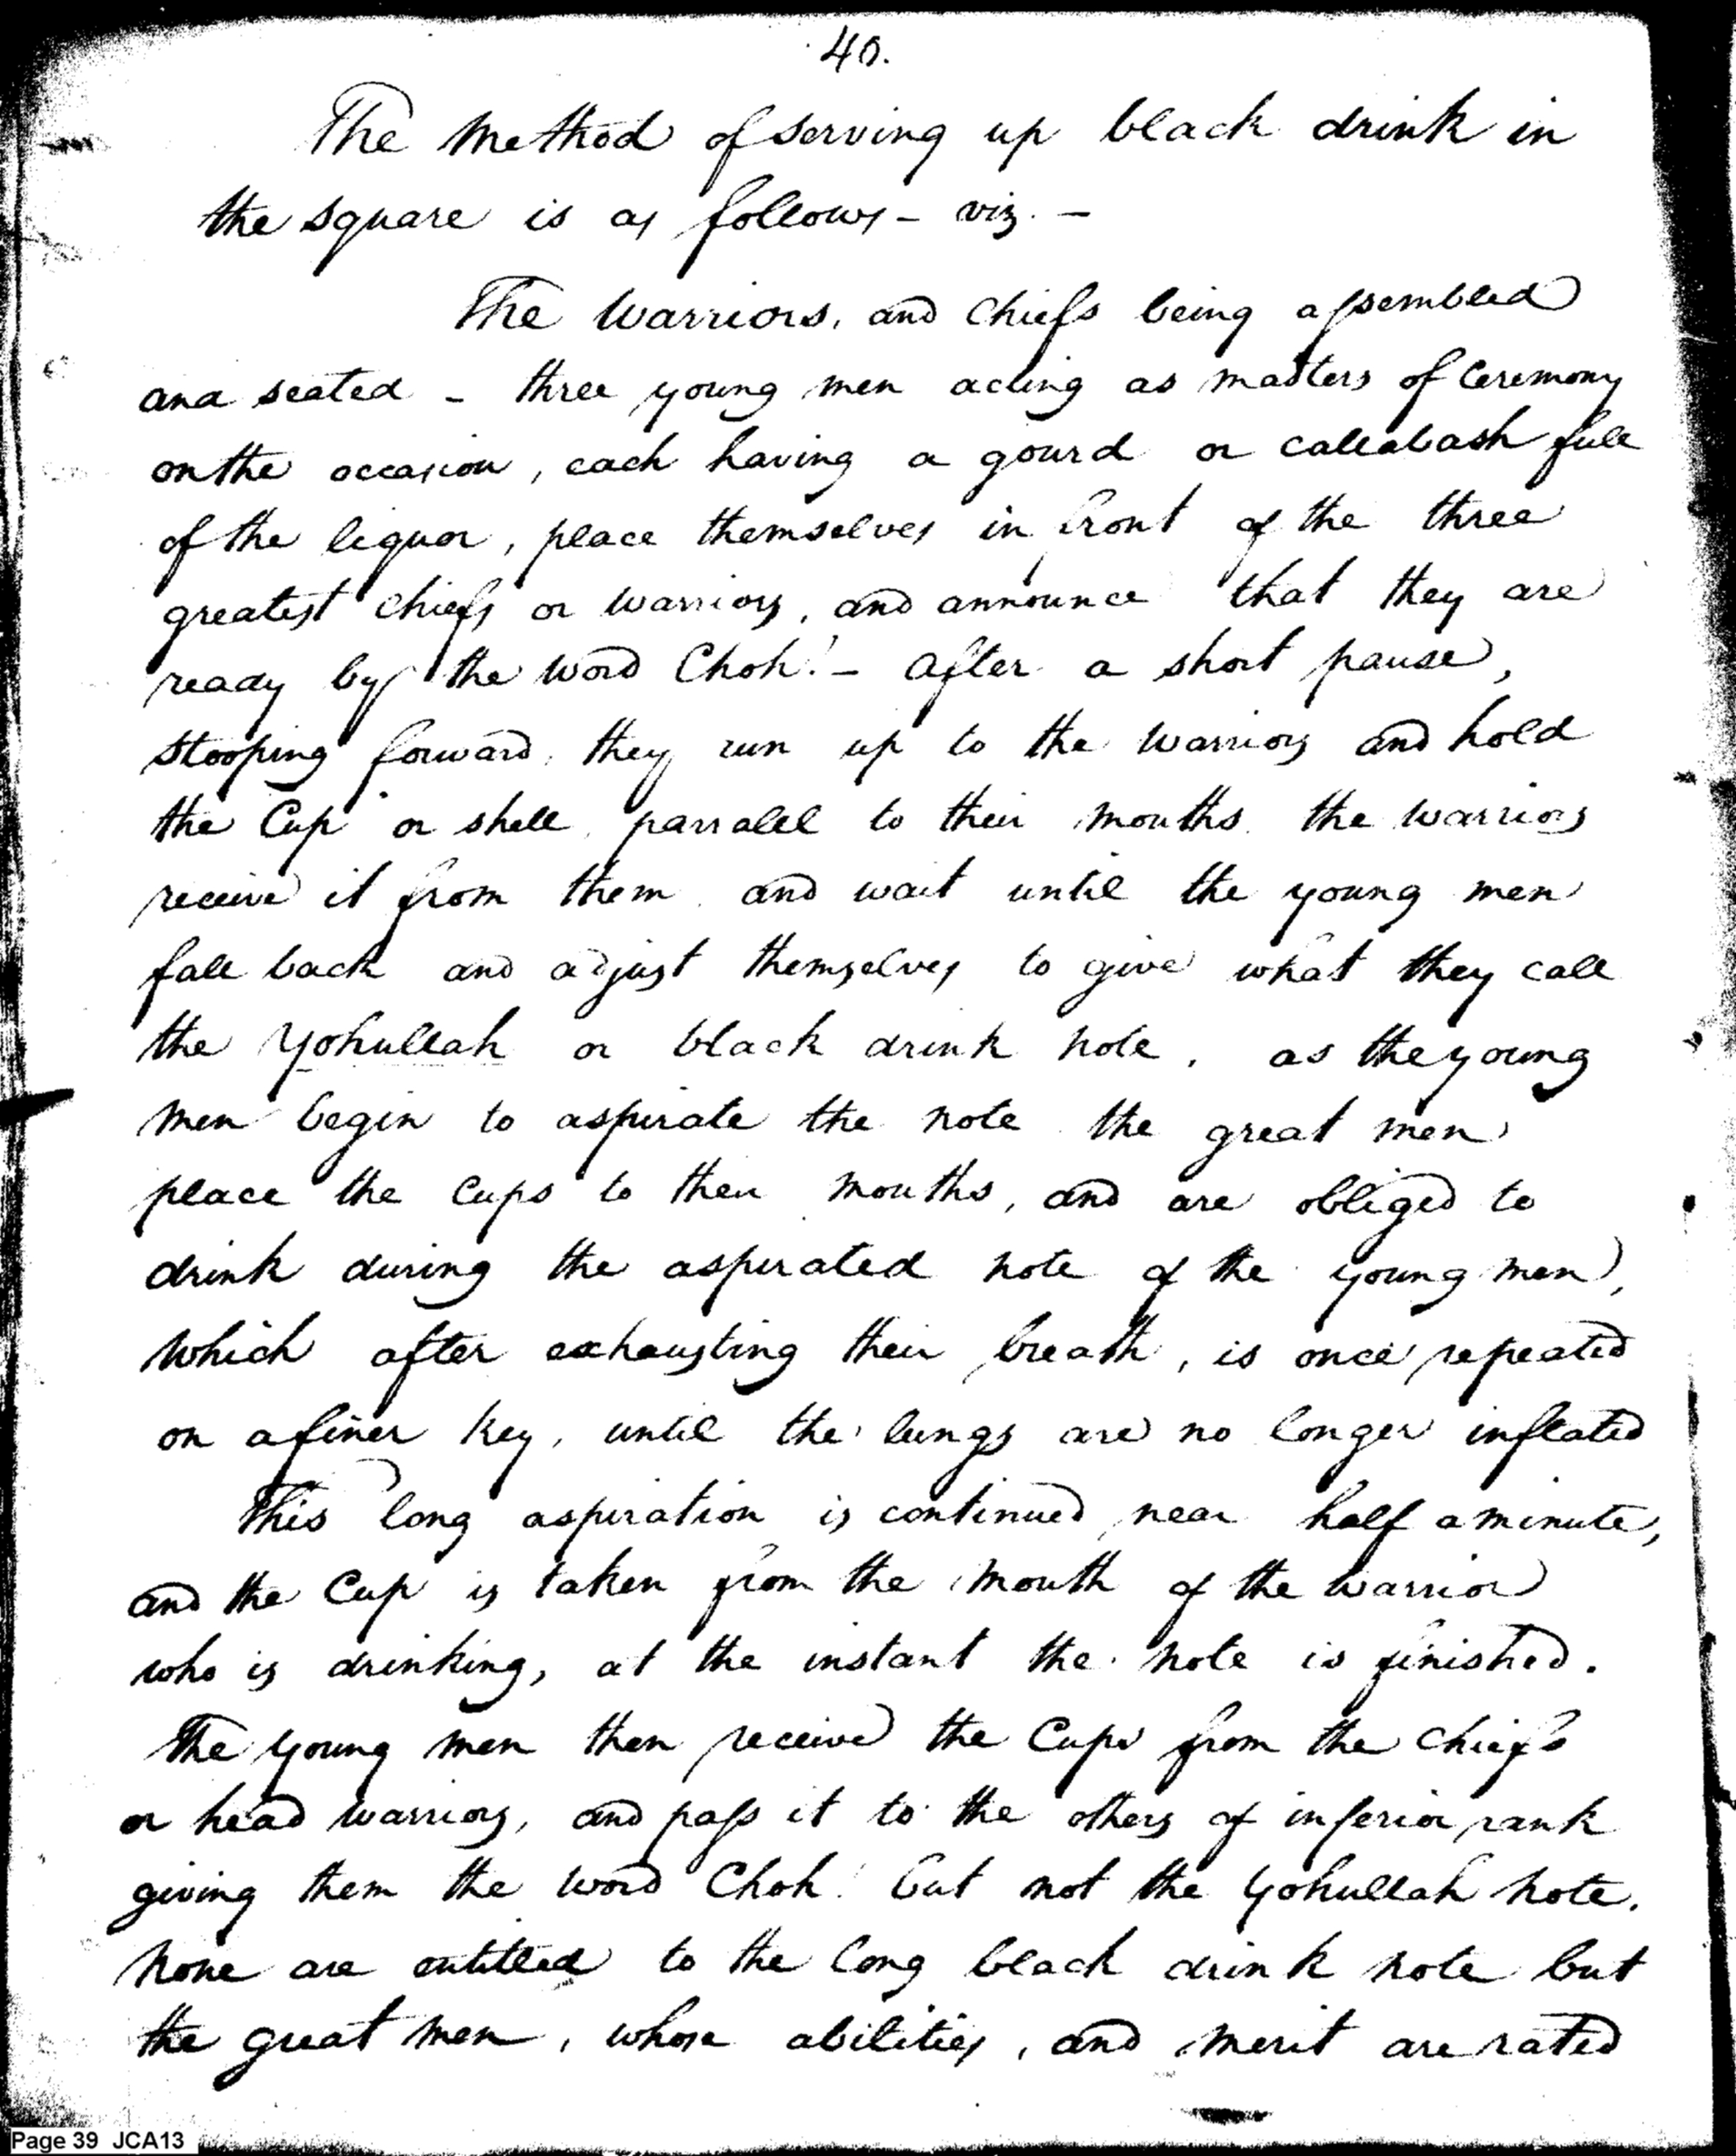 40.
The Method of serving up black drink in
the square is as follows – viz. –
The Warriors, and Chiefs being assembled
and seated – three young men acting as masters of Ceremony
on the occasion, each having a gourd or callabash full
of the liquor, place themselves in front of the three
greatest chiefs or warriors, and announce that they are
ready by the word Choh! – After a short pause,
stooping forward, they run up to the warriors and hold
the Cup or shell parralel to their mouths. the warriors
receive it from them and wait until the young men
fall back and adjust themselves to give what they call
the Yohullah or black drink note. as the young
men begin to aspirate the note the great men
place the cups to their mouths, and are obliged to
drink during the aspirated note of the young men,
which after exhausting their breath, is once repeated
on a finer key, until the lungs are no longer inflated
This long aspiration is continued near half a minute,
and the Cup is taken from the mouth of the warrior
who is drinking, at the instant the note is finished.
The young men then receive the Cups from the chiefs
or head warriors, and pass it to the others of inferior rank
giving them the word Choh! but not the Yohullah note.
None are entitled to the long black drink note but
the great men, whose abilities, and merit are rated
Page 39 JCA13